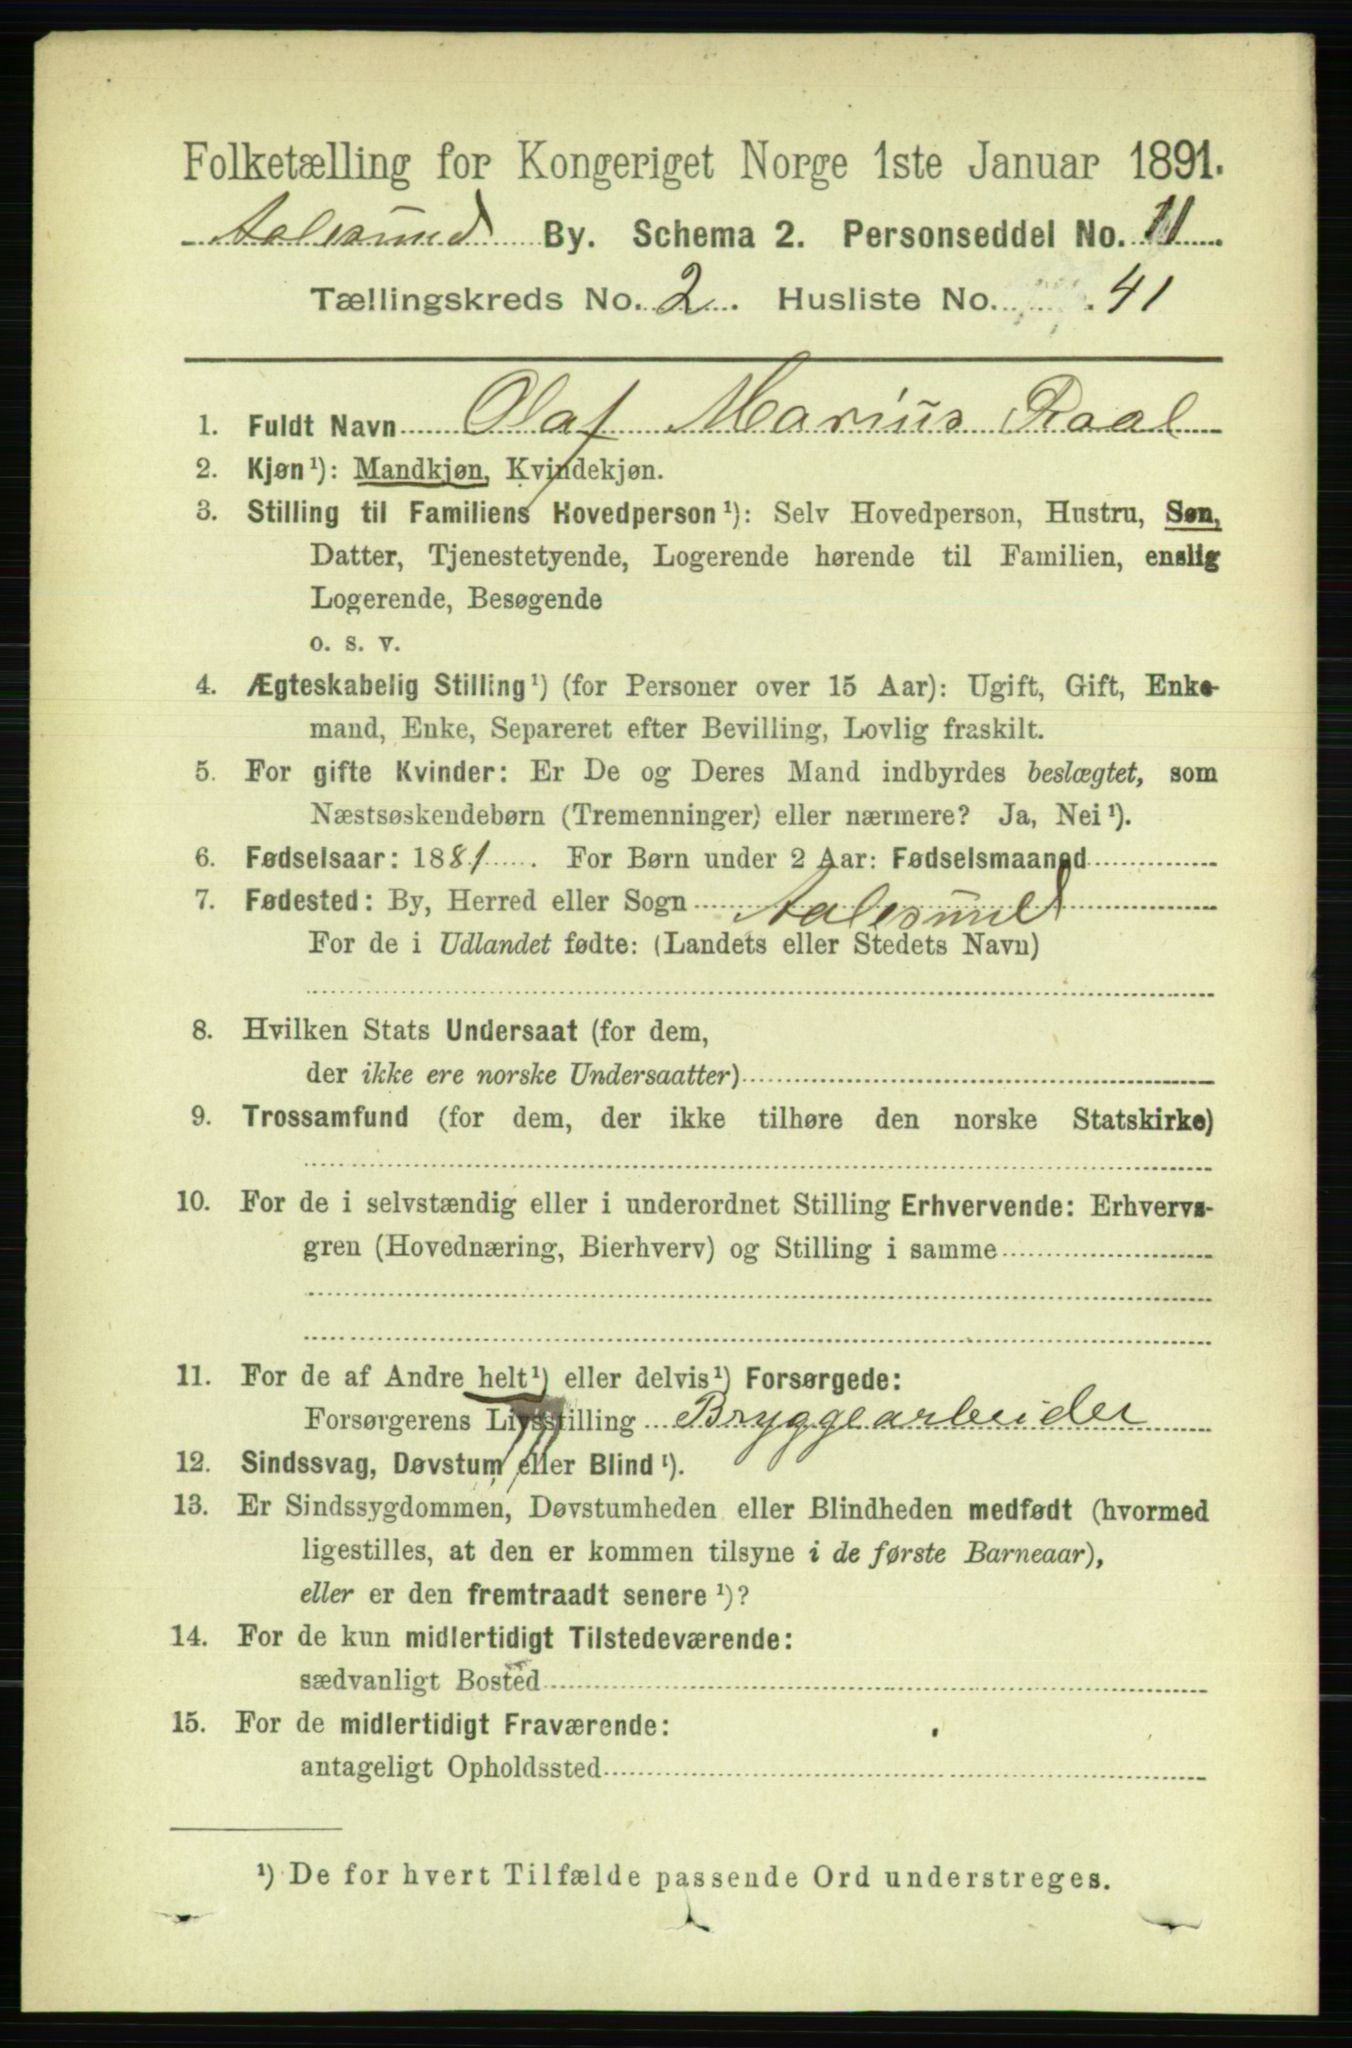 Folketælling for Kongeriget Norge 1ste Januar 1891.
Aalesund By. Schema 2. Personseddel No. 11
Tællingskreds No. 2. Husliste No. 41
1. Fuldt Navn Olaf Marius Raal
2. Kjøn¹): Mandkjøn, Kvindekjøn.
3. Stilling til Familiens Hovedperson¹): Selv Hovedperson, Hustru, Søn,
Datter, Tjenestetyende, Logerende hørende til Familien, enslig
Logerende, Besøgende
o. s. v.
4. Ægteskabelig Stilling¹) (for Personer over 15 Aar): Ugift, Gift, Enke-
mand, Enke, Separeret efter Bevilling, Lovlig fraskilt.
5. For gifte Kvinder: Er De og Deres Mand indbyrdes beslægtet, som
Næstsøskendebørn (Tremenninger) eller nærmere? Ja, Nei¹).
6. Fødselsaar: 1881. For Børn under 2 Aar: Fødselsmaaned
7. Fødested: By, Herred eller Sogn Aalesund
For de i Udlandet fødte: (Landets eller Stedets Navn)
8. Hvilken Stats Undersaat (for dem,
der ikke ere norske Undersaatter)
9. Trossamfund (for dem, der ikke tilhøre den norske Statskirke)
10. For de i selvstændig eller i underordnet Stilling Erhvervende: Erhvervs-
gren (Hovednæring, Bierhverv) og Stilling i samme
11. For de af Andre helt¹) eller delvis¹) Forsørgede:
Forsørgerens Livsstilling Bryggearbeider
12. Sindssvag, Døvstum eller Blind¹).
13. Er Sindssygdommen, Døvstumheden eller Blindheden medfødt (hvormed
ligestilles, at den er kommen tilsyne i de første Barneaar),
eller er den fremtraadt senere¹)?
14. For de kun midlertidigt Tilstedeværende:
sædvanligt Bosted
15. For de midlertidigt Fraværende:
antageligt Opholdssted
¹) De for hvert Tilfælde passende Ord understreges.